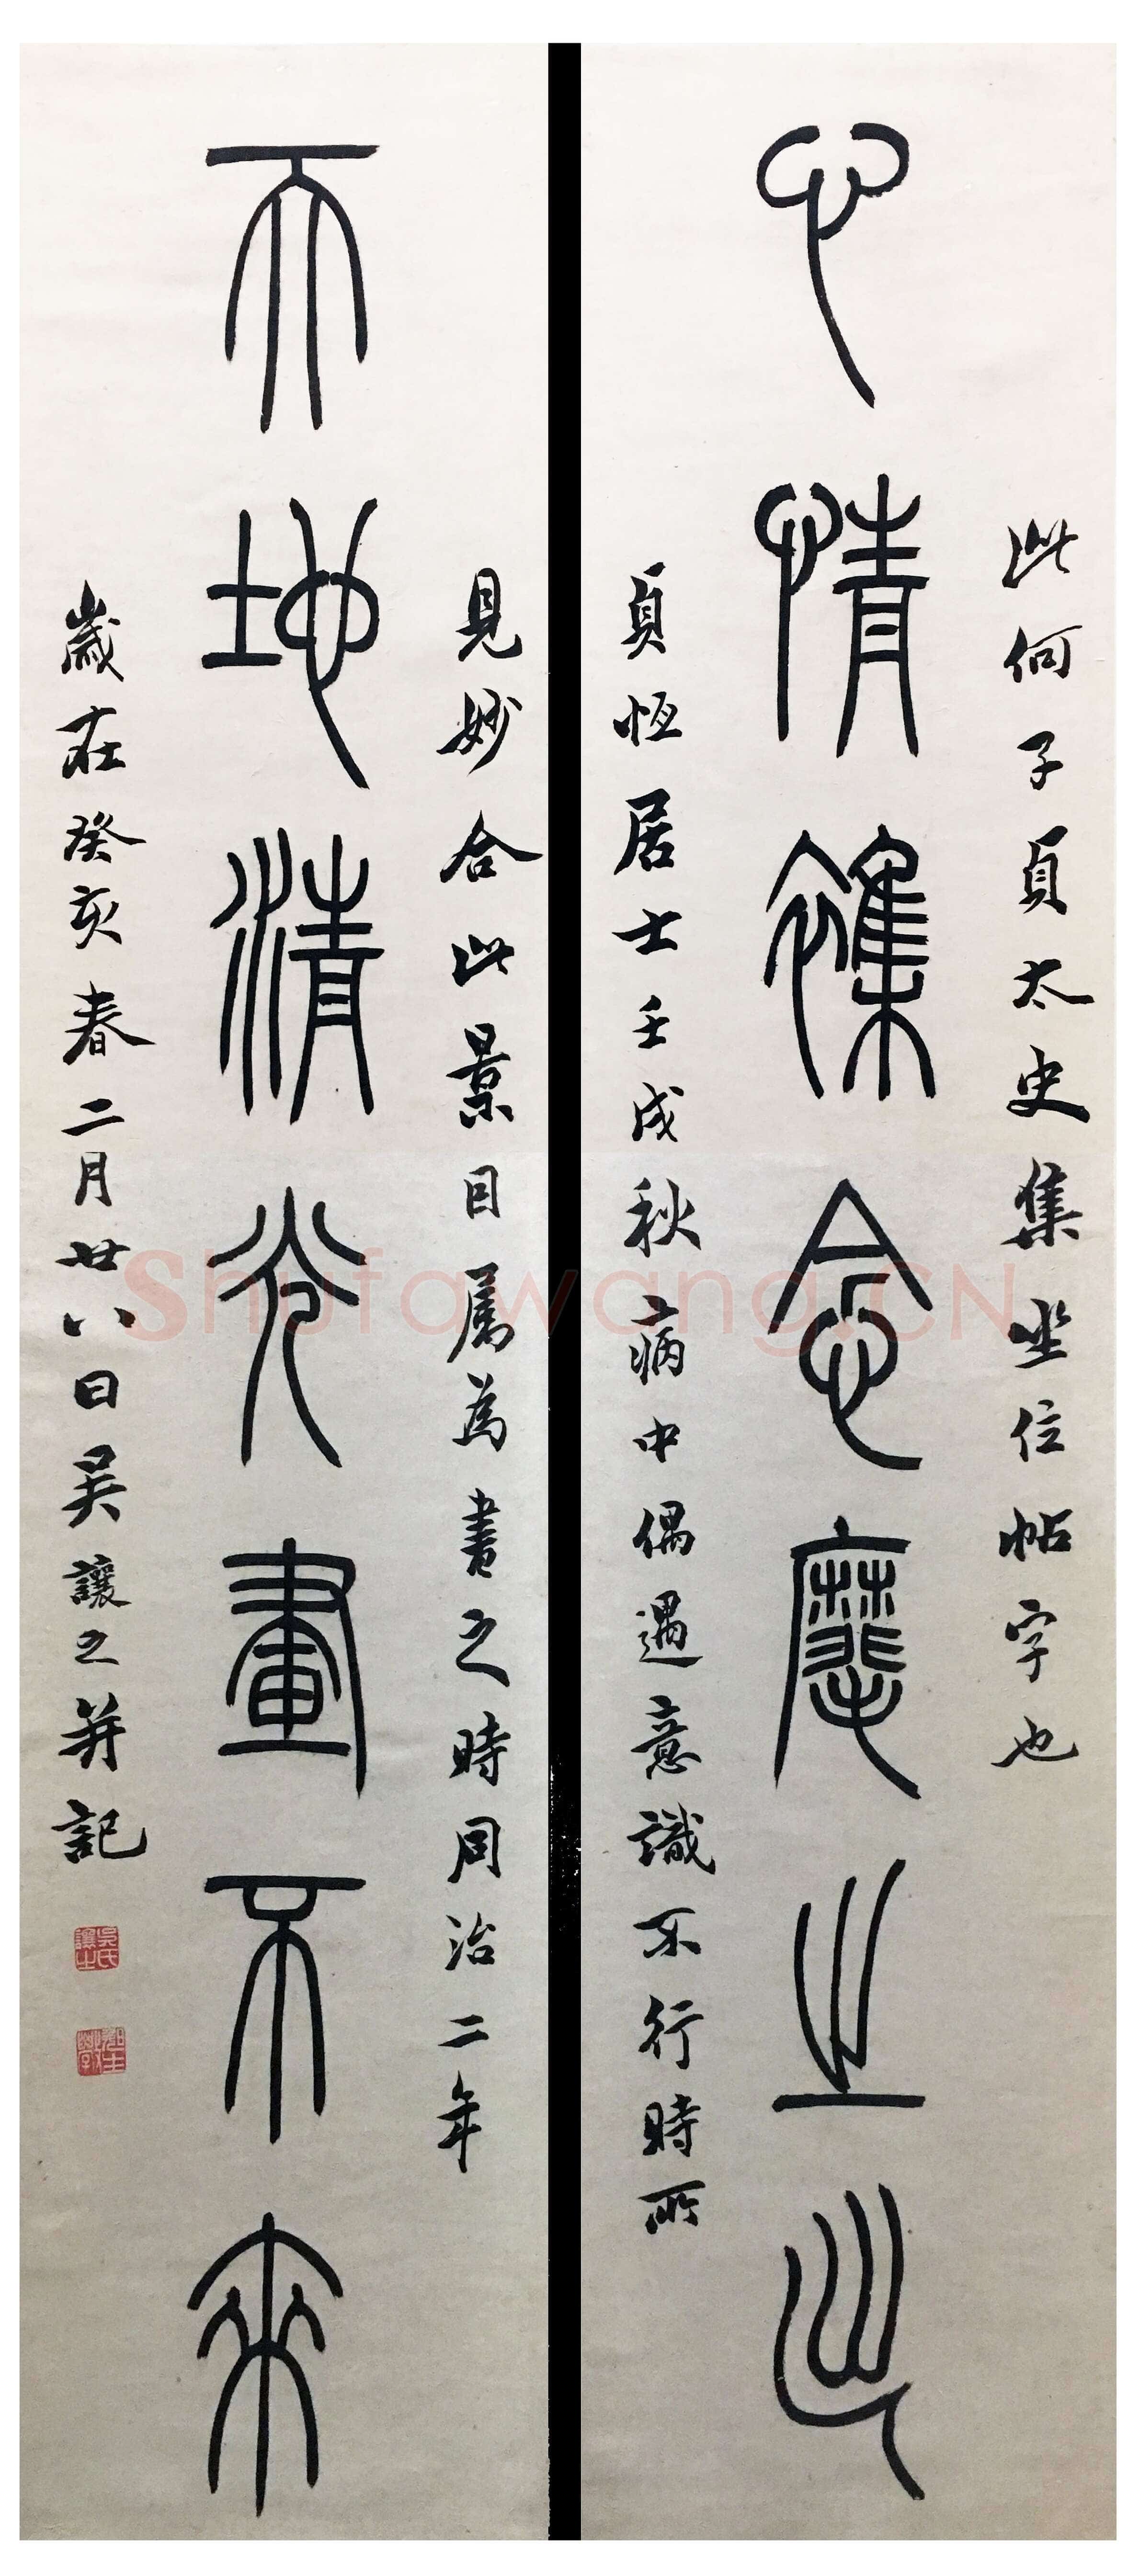 此何子貞太史集坐位帖字也
心情雜念麾之出
貞恆居士壬戌秋病中偶遇意識不行時所
見妙合此景因屬為書之時同治二年
天地清光畫不來
歲在癸亥春二月廿八日吳讓之并記
吳氏讓之
Shufawang.CN